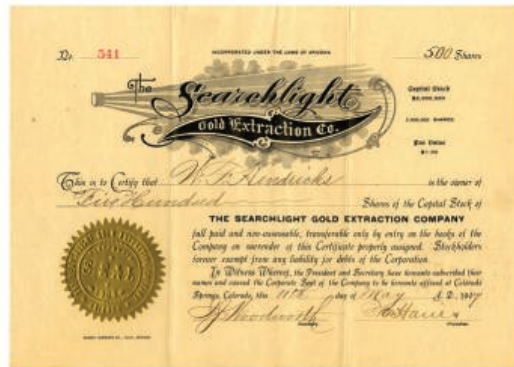 No. 541
INCORPORATED UNDER THE LAWS OF ARIZONA
500 Shares
The
Searchlight
Gold Extraction Co.
Capital Stock
$2,000,000
2,000,000 SHARES
Par Value
$1.00
This is to Certify that W. F. Hendricks is the owner of
Five Hundred Shares of the Capital Stock of
THE SEARCHLIGHT GOLD EXTRACTION COMPANY
full paid and non-assessable, transferable only by entry on the books of the
Company on surrender of this Certificate properly assigned. Stockholders
forever exempt from any liability for debts of the Corporation.
In Witness Whereof, the President and Secretary have hereunto subscribed their
names and caused the Corporate Seal of the Company to be hereunto affixed at Colorado
Springs, Colorado, this 11th day of May A.D. 1907
Woodworth
Secretary
President
SEAL